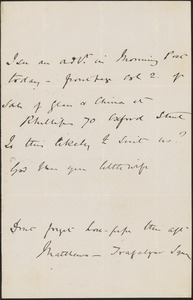 I see an advt. in Morning Post
today - front page Col 2. of
Sale of Glass & China at
Phillips 70 Oxford Street
Is this likely to suit us?
God bless you
Don't forget
Matthews - Trafalgar Sqre